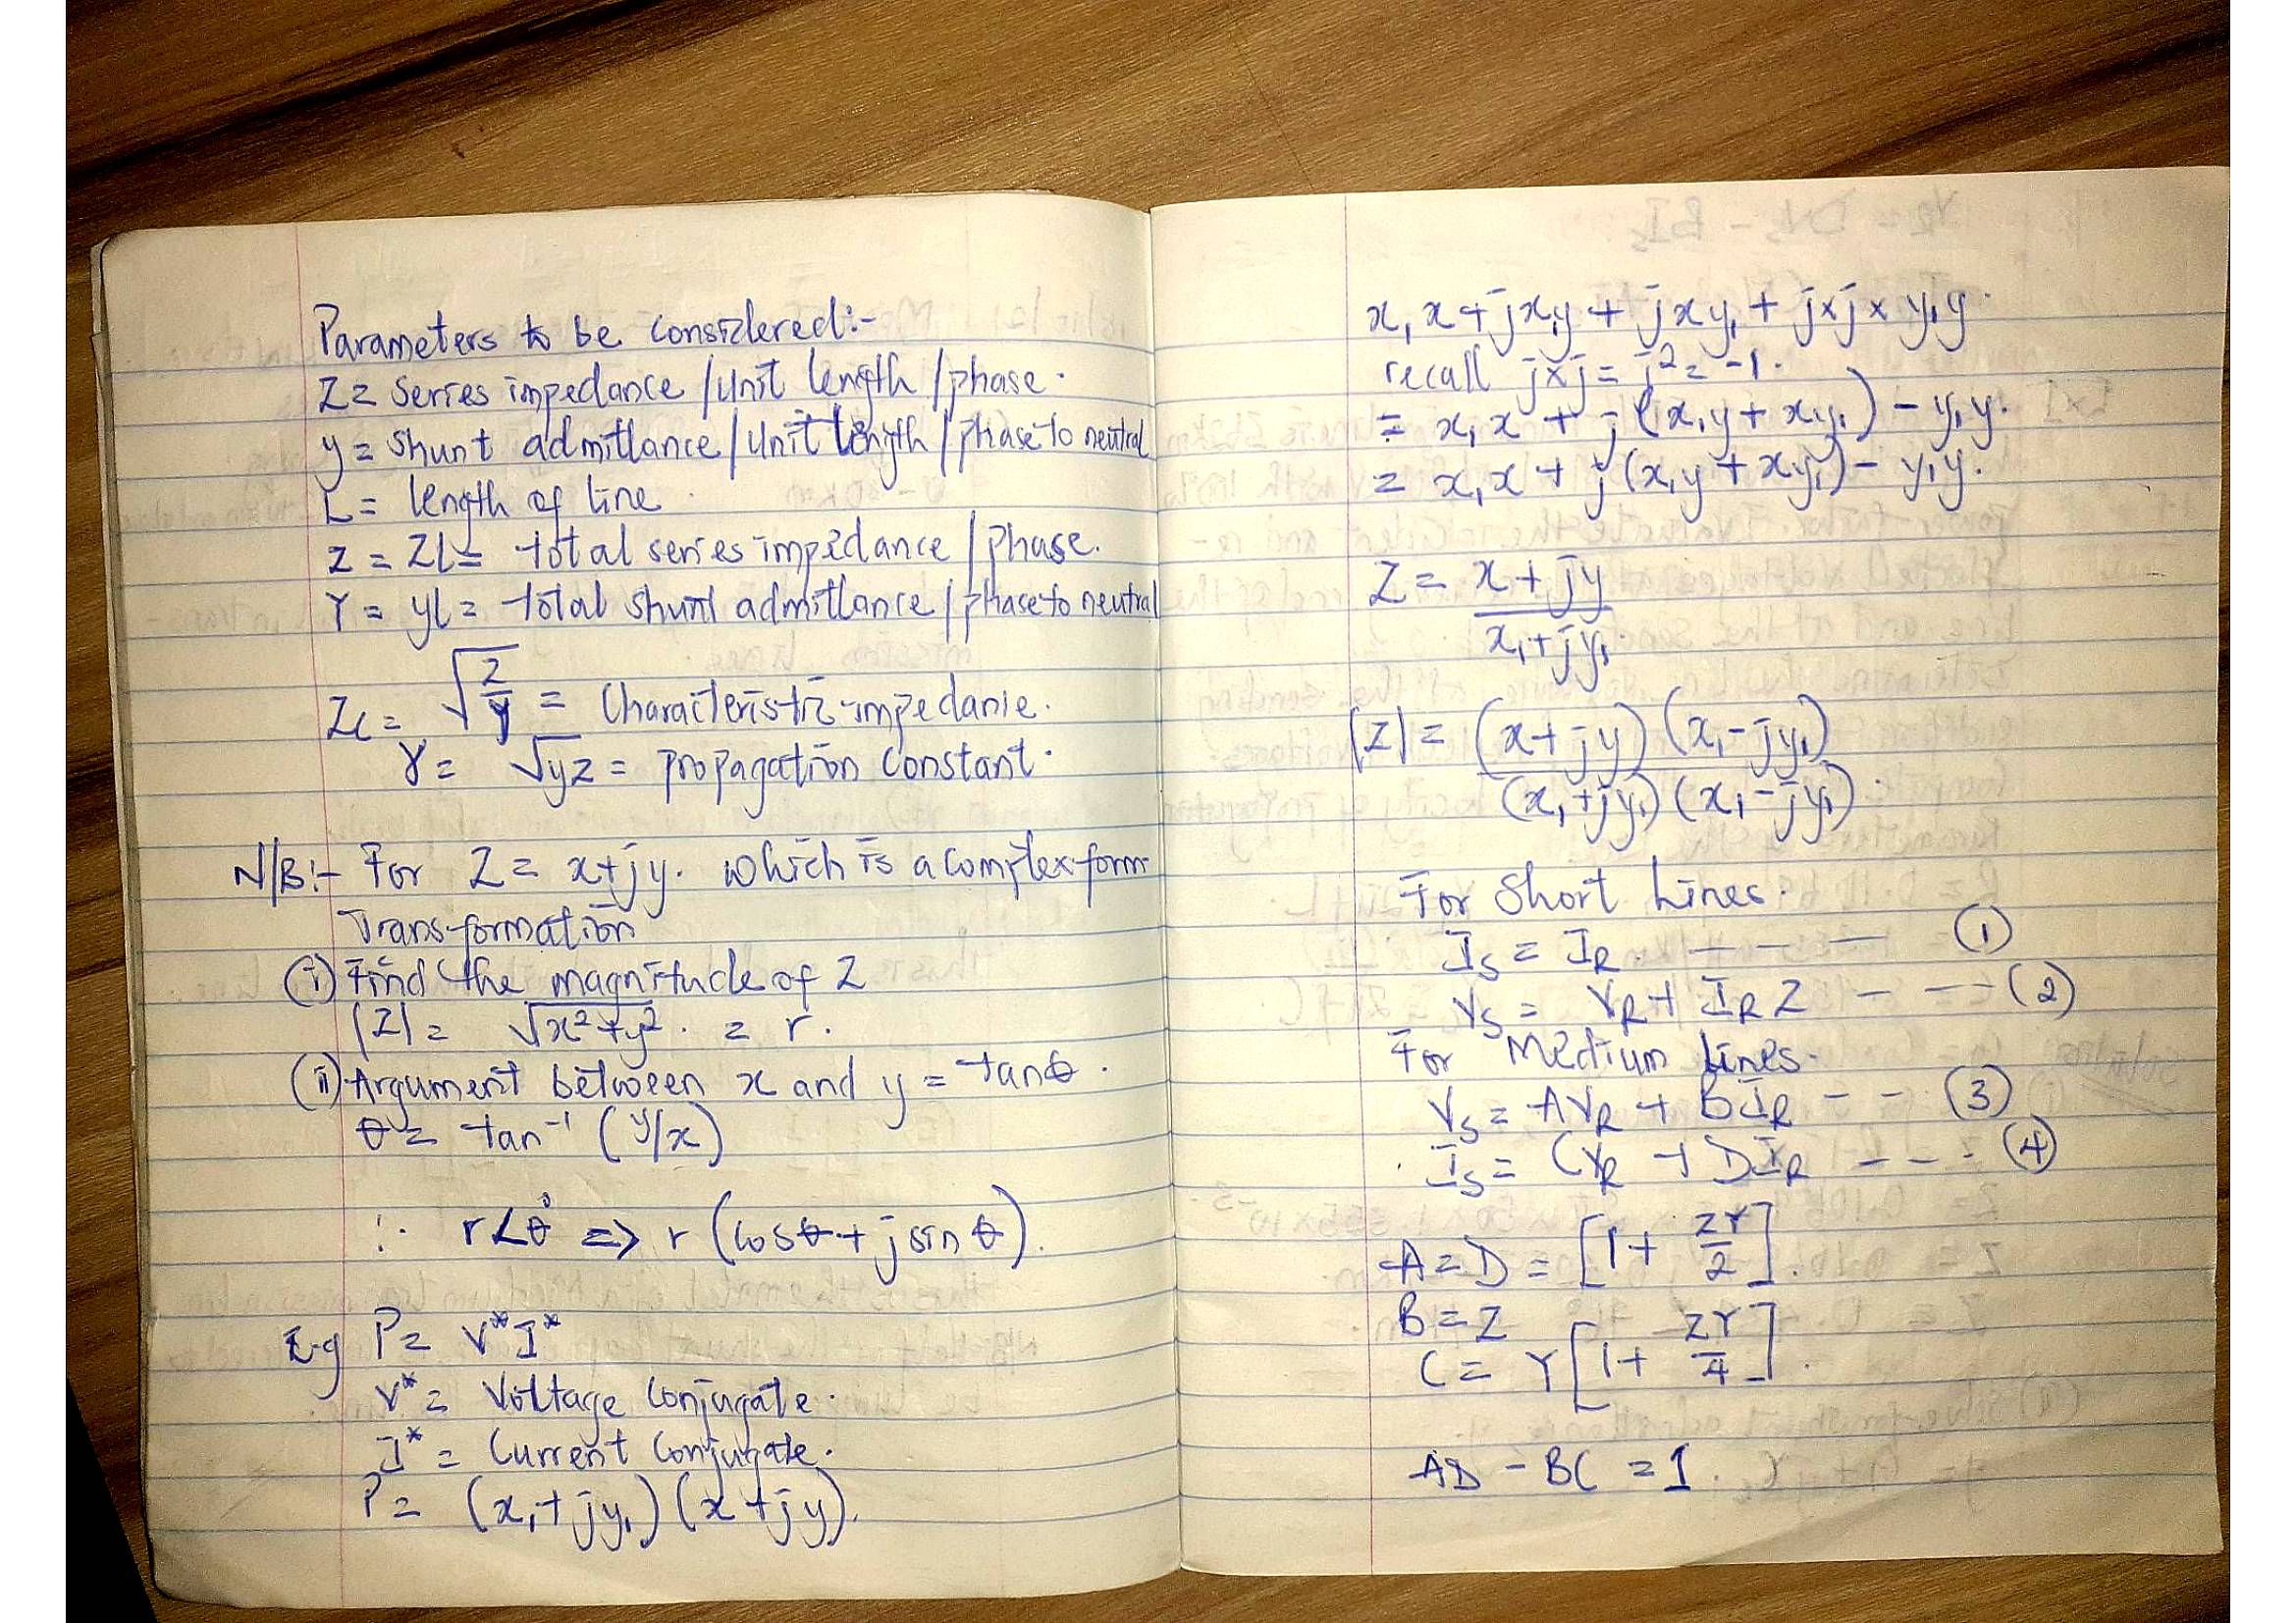 Parameters to be considered:-
Z = Series impedance / Unit length / phase.
y = Shunt admittance / Unit length / phase to neutral
L = length of line
z = ZL = total series impedance / phase.
Y = yl = total shunt admittance / phase to neutral
Zc = √(z/y) = Characteristic impedance.
γ = √yz = propagation constant.
N/B:- For Z = x+jy. which is a complex form
Transformation
(i) Find the magnitude of Z
|Z| = √x²+y². = r.
(ii) Argument between x and y = tanθ.
θ = tan⁻¹ (y/x)
∴ r∠θ° => r (cosθ + j sin θ).
E.g P = V* I*
V* = Voltage Conjugate.
I* = Current Conjugate.
P = (x₁+jy₁) (x+jy).
x₁x + jx₁y + jxy₁ + j×j× y₁y.
recall j×j = j² = -1.
= x₁x + j(x₁y + xy₁) - y₁y.
= x₁x + j(x₁y + xy₁) - y₁y.
Z = x+jy
x₁+jy₁.
|Z| = (x+jy) (x₁-jy₁)
(x₁+jy₁) (x₁-jy₁).
For Short Lines.
Is = IR. - - - (1)
Vs = VR + IR Z - - - (2)
For Medium Lines.
Vs = AVR + BIR - - (3)
Is = CVR + DIR - - - (4)
A = D = [1 + ZY/2].
B = Z
C = Y[1 + ZY/4].
AD - BC = 1.